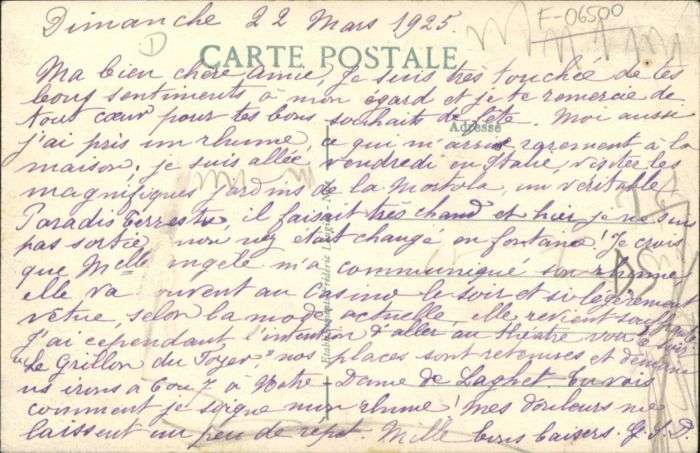 Dimanche 22 Mars 1925.
F-06500
D
CARTE POSTALE
Adresse
Ma bien chère amie, Je suis très touchée de tes
bons sentiments à mon égard et je te remercie de
tout cœur pour tes bons souhaits de fête. Moi aussi
j'ai pris un rhume, ce qui m'arrive rarement à la
maison, je suis allée vendredi en Italie, visiter les
magnifiques jardins de la Mortola, un véritable
Paradis Terrestre, il faisait très chaud et hier je ne suis
pas sortie, mon nez était changé en fontaine! Je crois
que Melle Angèle m'a communiqué son rhume
elle va souvent au Casino le soir et si légèrement
vêtue, selon la mode actuelle, elle revient
J'ai cependant l'intention d'aller au théâtre voir
"Le Grillon du Foyer", nos places sont retenues et demain
ns irons à à Notre-Dame de Laghet. Tu vois
comment je soigne mon rhume! Mes douleurs me
laissent un peu de répit. Mille bons baisers.